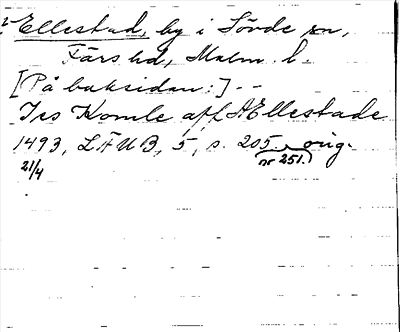 Ellestad, by i Sövde sn,
Färs hd, Malm. l.
[På baksidan:] --
Jes Komle aff Ellestade
1493, LÄUB, 5, s. 205. orig.
21/4 nr 251.)